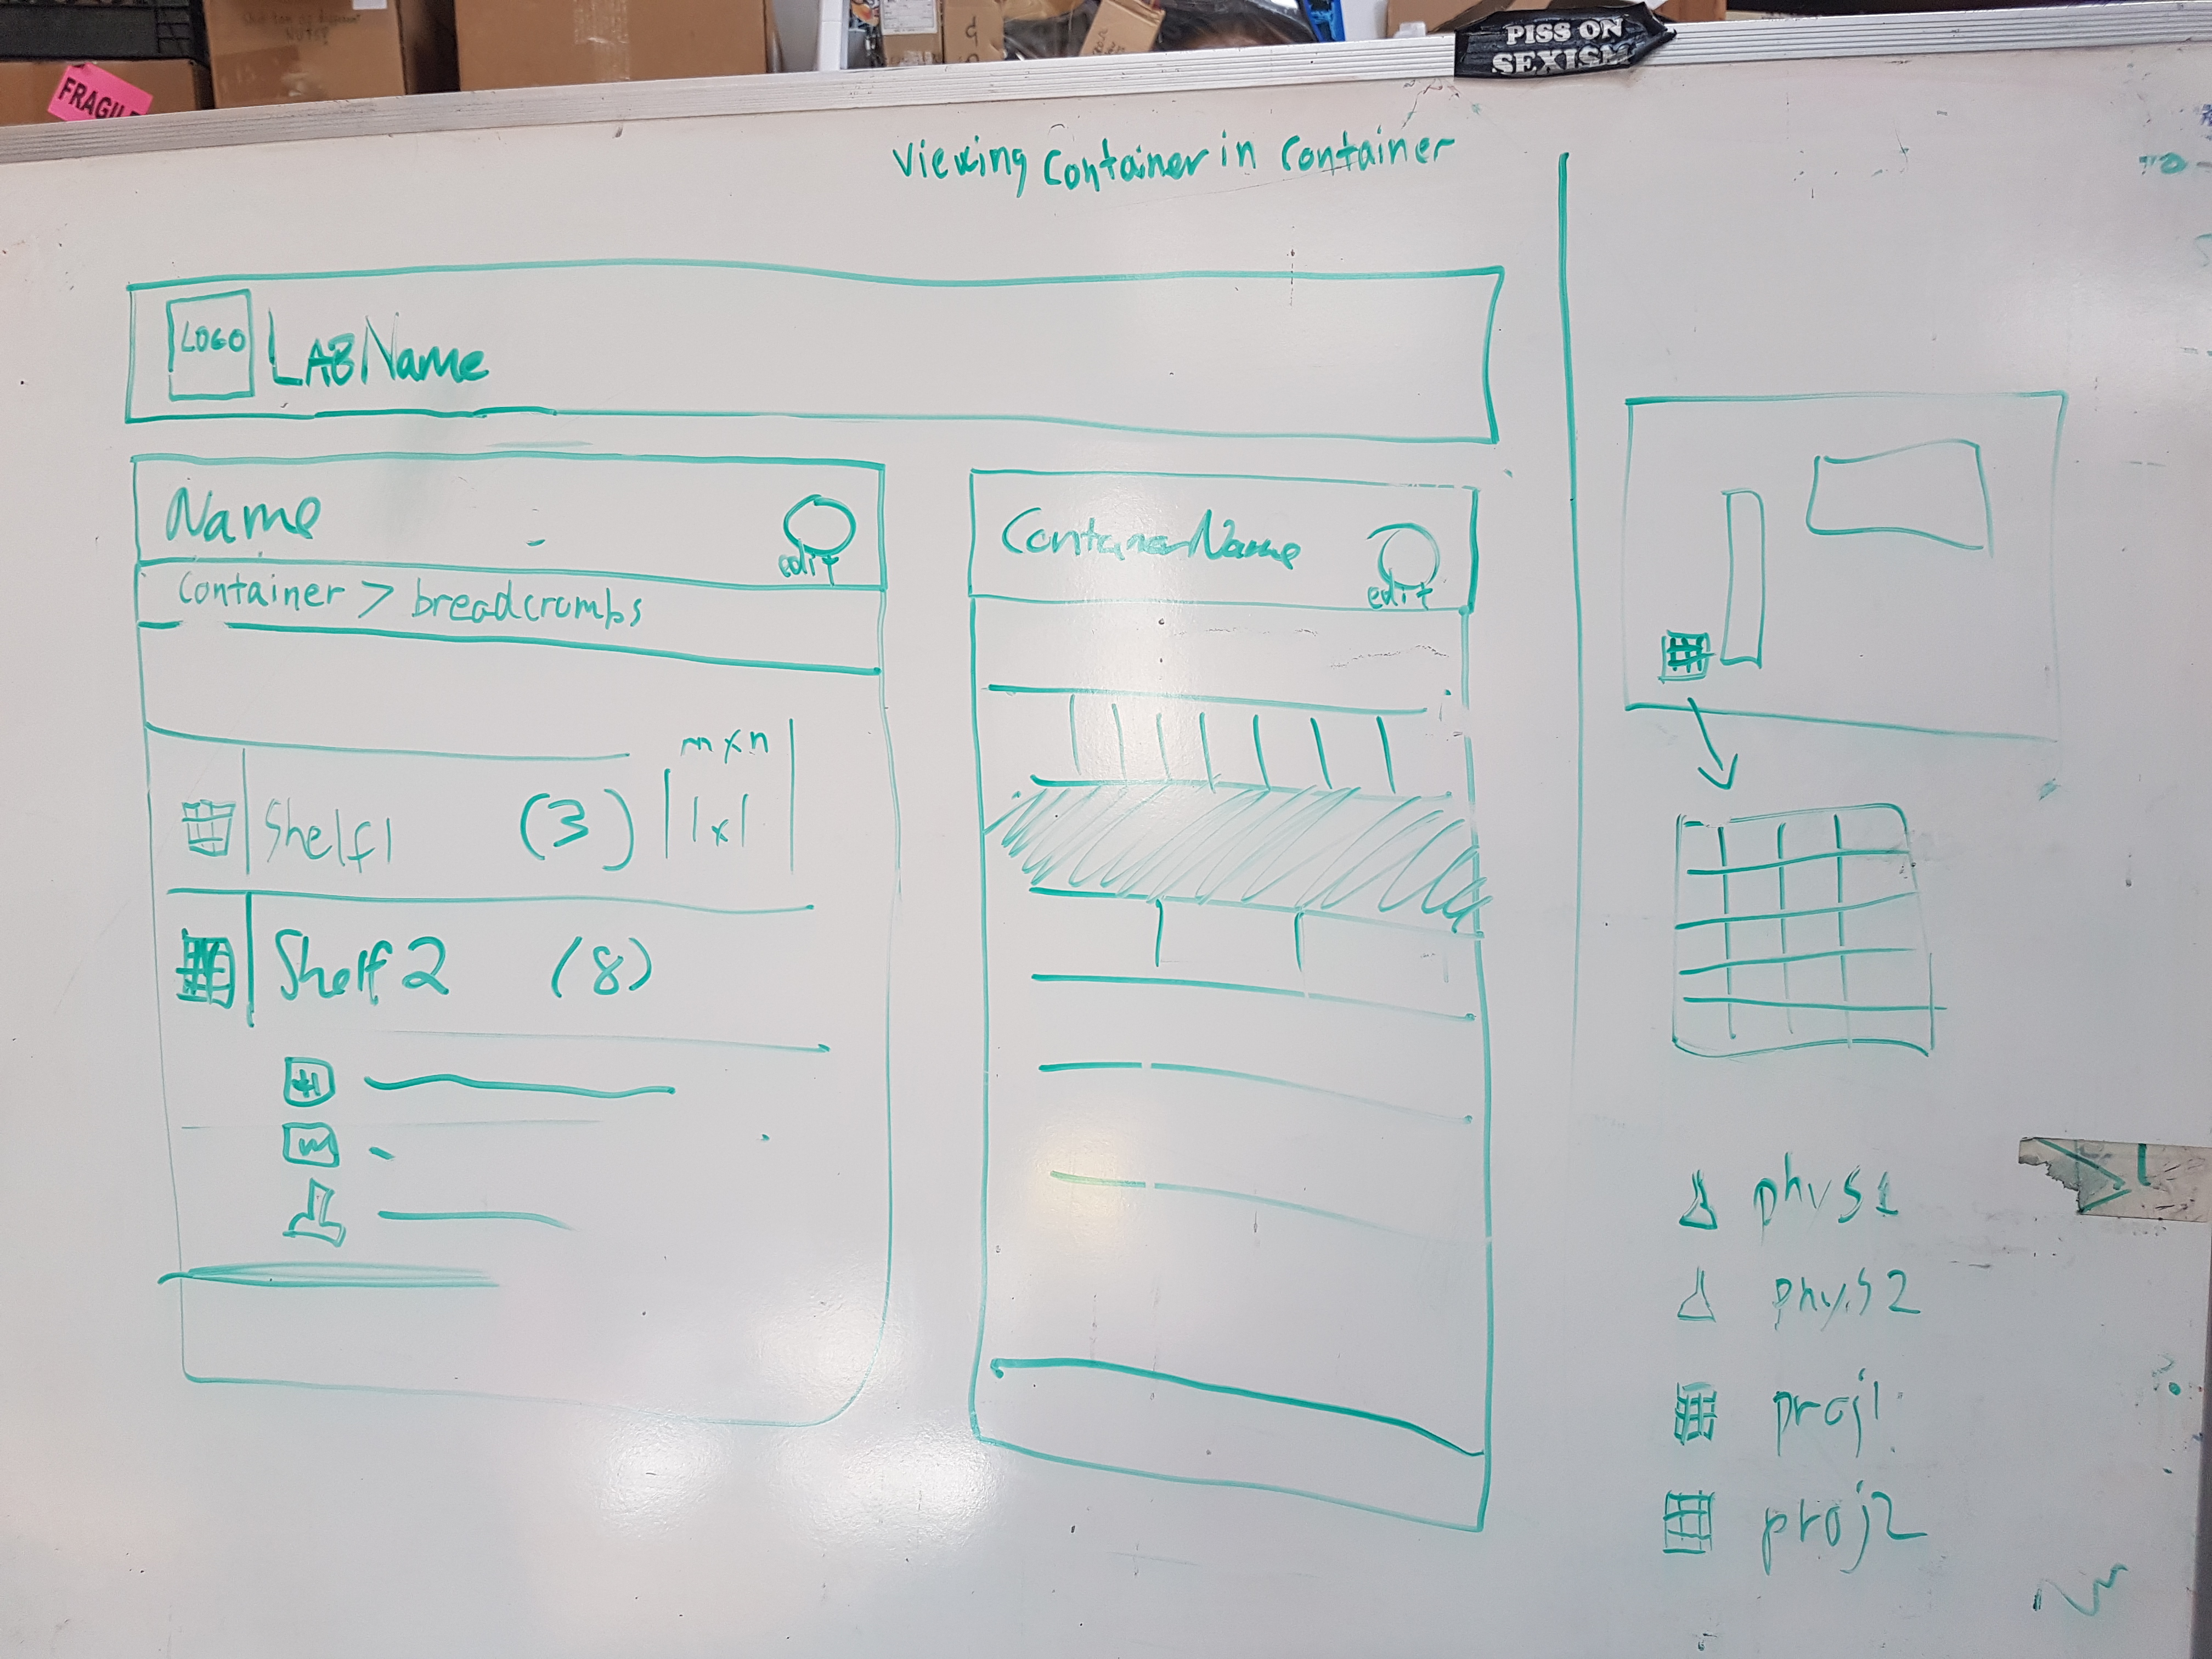 FRAGILE
PISS ON
SEXISM
Viewing Container in Container
LOGO
LAB Name
Name
edit
Container > breadcrumbs
mxn
Shelf1 (3) 1x1
Shelf 2 (8)
ContainerName
edit
phys1
phys2
proj1
proj2